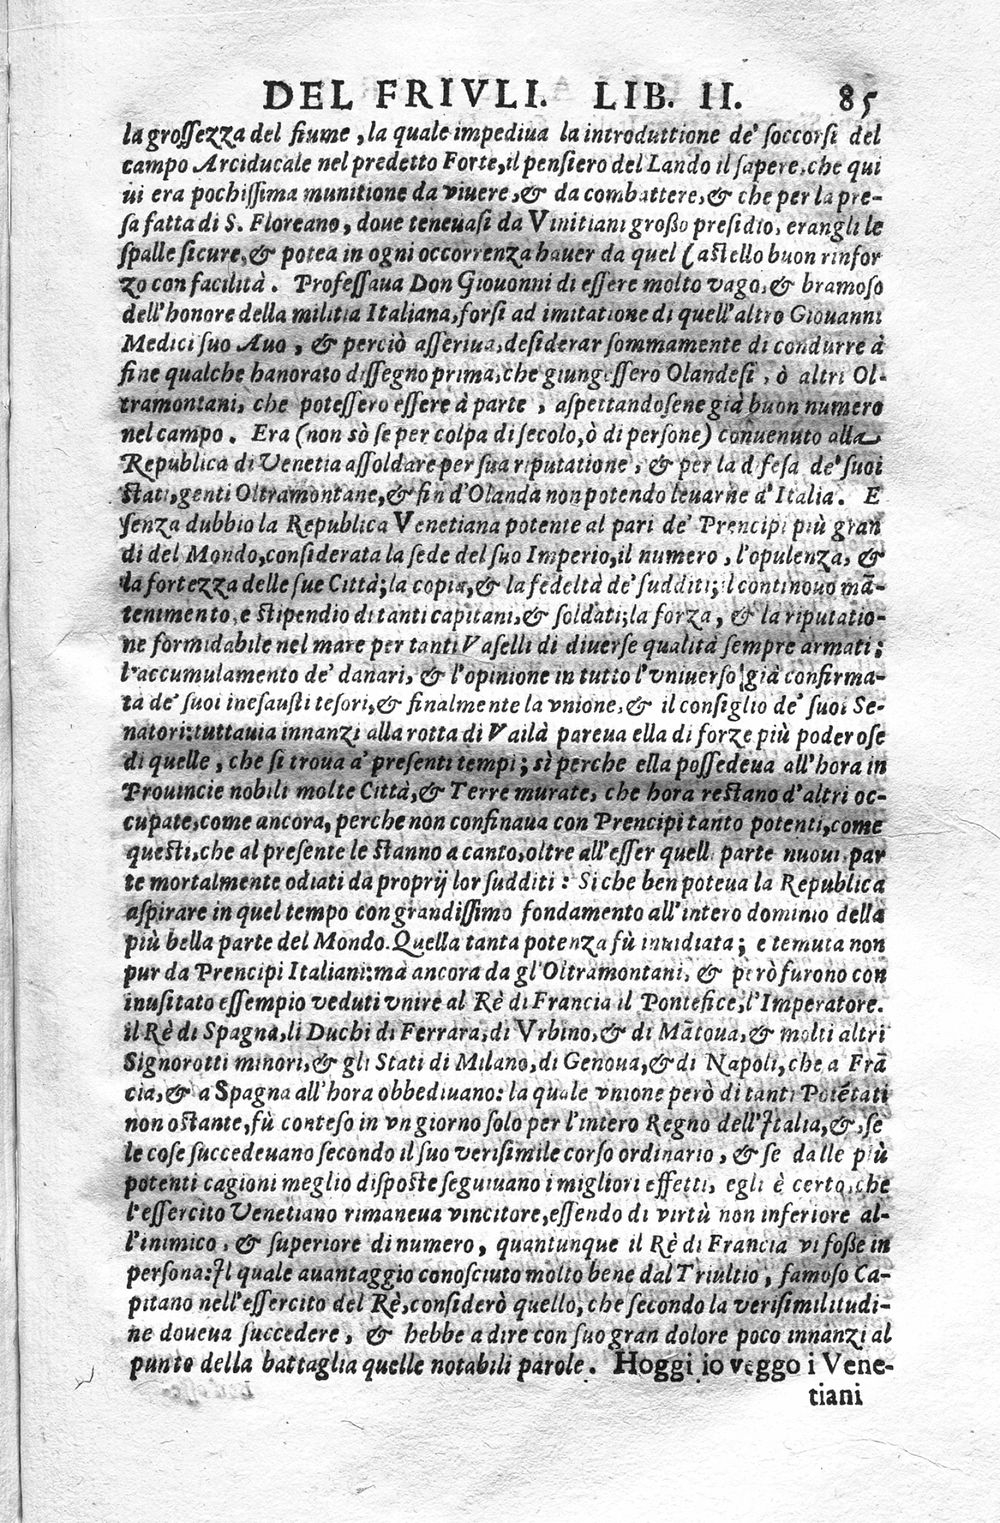 DEL FRIVLI. LIB. II. 85
la grossezza del fiume, la quale impediua la introduttione de' soccorsi del
campo Arciducale nel predetto Forte, il pensiero del Lando il sapere, che qui
ui era pochissima munitione da viuere, & da combattere, & che per la pre-
sa fatta di S. Floreano, doue teneuasi da Vinitiani grosso presidio, erangli le
spalle sicure, & potea in ogni occorrenza hauer da quel Castello buon rinfor
zo con facilità. Professaua Don Giouonni di essere molto vago, & bramoso
dell'honore della militia Italiana, forsi ad imitatione di quell'altro Giouanni
Medici suo Auo, & perciò asseriua, desiderar sommamente di condurre à
fine qualche hanorato dissegno prima, che giungessero Olandesi, ò altri Ol-
tramontani, che potessero essere à parte, aspettandosene già buon numero
nel campo. Era (non sò se per colpa di secolo, ò di persone) conuenuto alla
Republica di Venetia assoldare per sua riputatione, & per la difesa de' suoi
stati, genti Oltramontane, & fin d'Olanda non potendo leuarne d'Italia. E
senza dubbio la Republica Venetiana potente al pari de' Prencipi più gran
di del Mondo, considerata la sede del suo Imperio, il numero, l'opulenza, &
la fortezza delle sue Città; la copia, & la fedeltà de' sudditi; il continouo mã-
tenimento, e stipendio di tanti capitani, & soldati; la forza, & la riputatio-
ne formidabile nel mare per tanti Vaselli di diuerse qualità sempre armati;
l'accumulamento de' danari, & l'opinione in tutto l'vniuerso già confirma-
ta de' suoi inesausti tesori, & finalmente la vnione, & il consiglio de' suoi Se-
natori: tuttauia innanzi alla rotta di Vailà pareua ella di forze più poderose
di quelle, che si troua a' presenti tempi; sì perche ella possedeua all'hora in
Prouincie nobili molte Città, & Terre murate, che hora restano d'altri oc-
cupate, come ancora, perche non confinaua con Prencipi tanto potenti, come
questi, che al presente le stanno a canto, oltre all'esser quelli parte nuoui, par
te mortalmente odiati da proprij lor sudditi: Si che ben poteua la Republica
aspirare in quel tempo con grandissimo fondamento all'intero dominio della
più bella parte del Mondo. Quella tanta potenza fù inuidiata; e temuta non
pur da Prencipi Italiani: mà ancora da gl'Oltramontani, & però furono con
inusitato essempio veduti vnire al Rè di Francia il Pontefice, l'Imperatore.
il Rè di Spagna, li Duchi di Ferrara, di Vrbino, & di Mãtoua, & molti altri
Signorotti minori, & gli Stati di Milano, di Genoua, & di Napoli, che a Frã
cia, & a Spagna all'hora obbediuano: la quale vnione però di tanti Potẽtati
non ostante, fù conteso in vn giorno solo per l'intero Regno dell'Italia, &, se
le cose succedeuano secondo il suo verisimile corso ordinario, & se dalle più
potenti cagioni meglio disposte seguiuano i migliori effetti, egli è certo, che
l'essercito Venetiano rimaneua vincitore, essendo di virtù non inferiore al-
l'inimico, & superiore di numero, quantunque il Rè di Francia vi fosse in
persona: Il quale auantaggio conosciuto molto bene dal Triultio, famoso Ca-
pitano nell'essercito del Rè, considerò quello, che secondo la verisimilitudi-
ne doueua succedere, & hebbe a dire con suo gran dolore poco innanzi al
punto della battaglia quelle notabili parole. Hoggi io veggo i Vene-
tiani